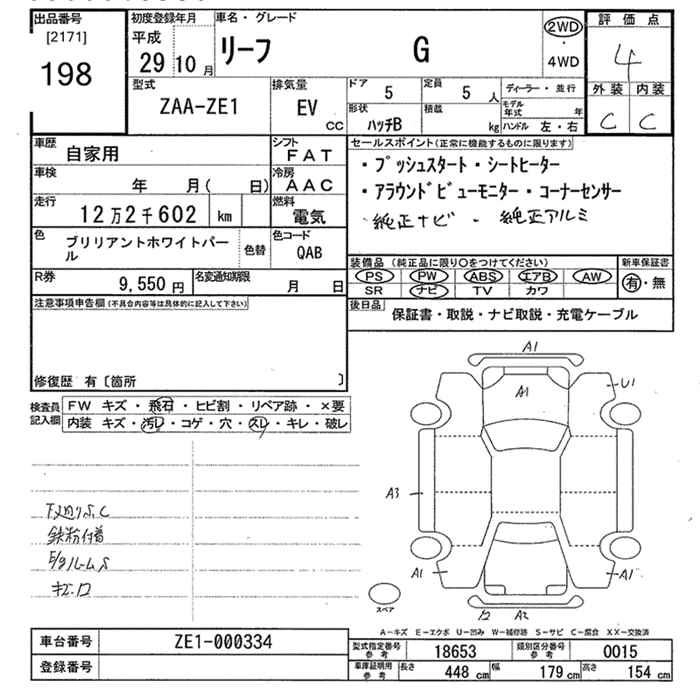 出品番号
[2171]
198
初度登録年月
平成
29年10月
車名・グレード
リーフ G
2WD
・
4WD
評価点
4
外装 内装
C C
型式
ZAA-ZE1
排気量
EV
CC
ドア 5
定員 5 人
形状 ハッチB
積載 kg
ディーラー・並行
モデル年式 年
ハンドル 左・右
車歴 自家用
シフト FAT
車検 年 月( 日)
冷房 AAC
走行 12万2千602 km
燃料 電気
色 ブリリアントホワイトパール
色替
色コード QAB
R券 9,550円
名変通知期限 月 日
セールスポイント(正常に機能するものに限ります)
・プッシュスタート・シートヒーター
・アラウンドビューモニター・コーナーセンサー
純正ナビ ・ 純正アルミ
装備品(純正品に限り○をつけてください)
新車保証書
PS PW ABS エアB AW
SR ナビ TV カワ
有・無
後日品 保証書・取説・ナビ取説・充電ケーブル
注意事項申告欄(不具合内容等は具体的に記入して下さい)
修復歴 有〔箇所 〕
検査員記入欄
FW キズ・飛石・ヒビ割・リペア跡・×要
内装 キズ・汚レ・コゲ・穴・スレ・キレ・破レ
鉄粉付着
A1
A1
U1
A3
A1
A1
A2
スペア
A-キズ E-エクボ U-凹み W-補修跡 S-サビ C-腐食 XX-交換済
車台番号 ZE1-000334
登録番号
型式指定番号 参考 18653
類別区分番号 参考 0015
車庫証明用 参考 長さ 448 cm 幅 179 cm 高さ 154 cm